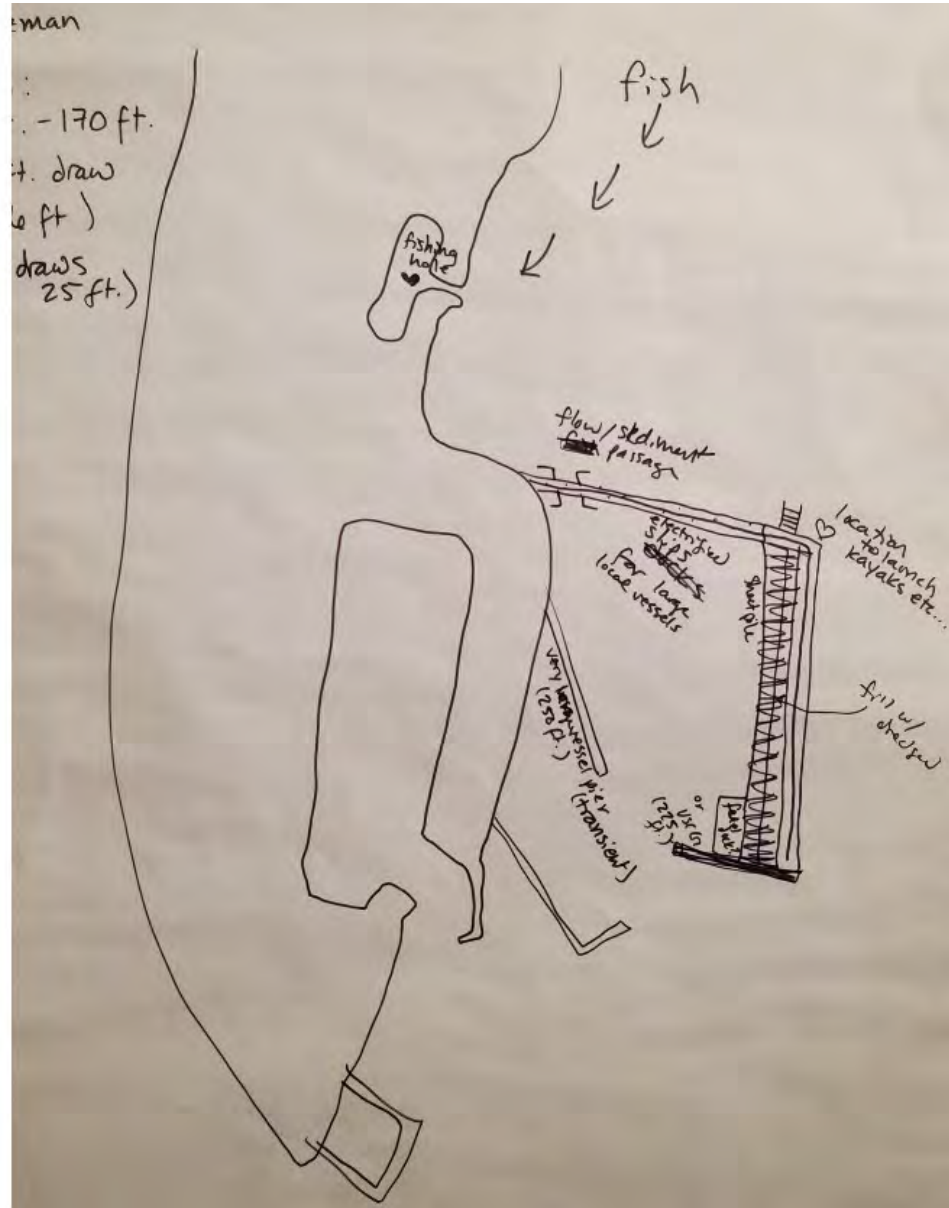 eman
:
. - 170 ft.
t. draw
6 ft)
draws
25 ft.)
fish
fishing
hole
flow/sediment
passage
electrified
slips
docks
for large
local vessels
sheet pile
location
to launch
kayaks etc...
fill w/
dredged
very large vessel pier
(250 ft.)
(transient)
or
USCG
(225
ft.)
fuel